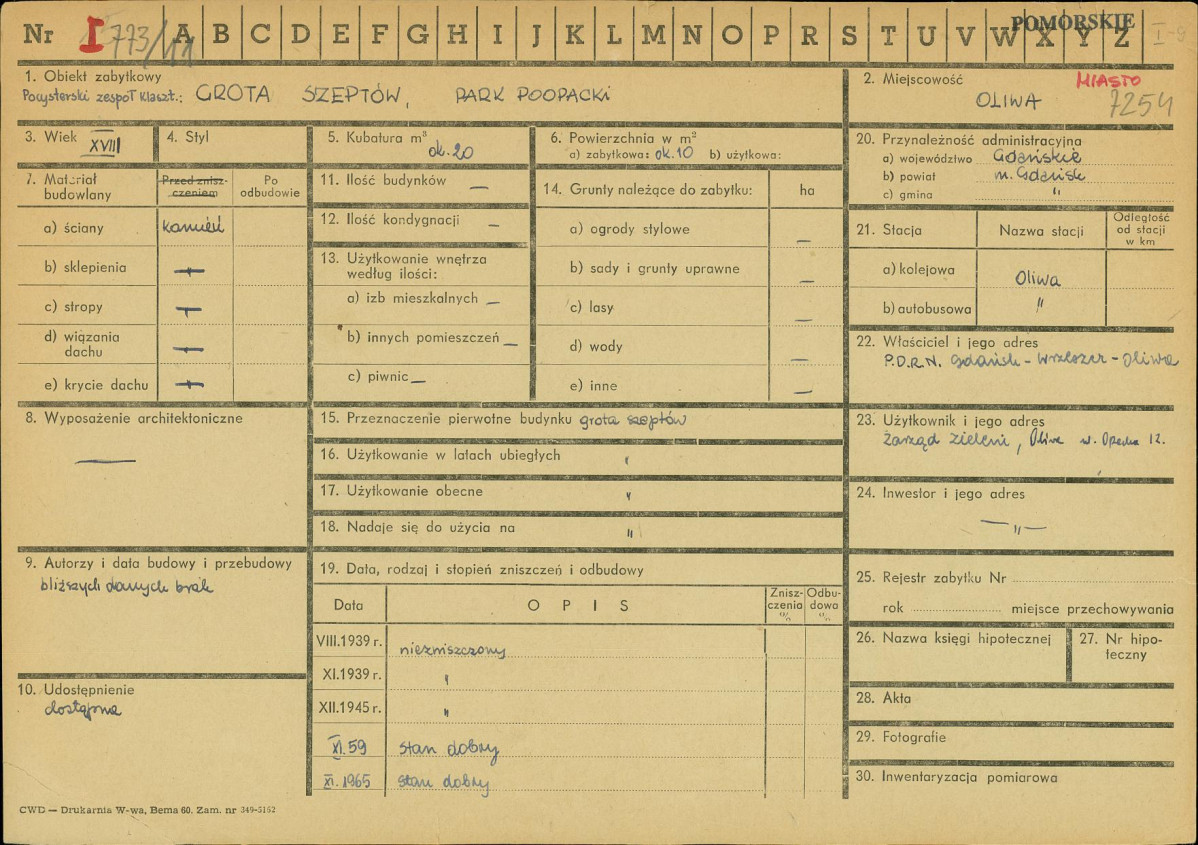 Nr I 773/11 A B C D E F G H I J K L M N O P R S T U V W X Y Z
POMORSKIE
I-9
1. Obiekt zabytkowy
Pocysterski zespoł klaszt.: GROTA SZEPTÓW, PARK POOPACKI
2. Miejscowość
MIASTO
OLIWA
7254
3. Wiek
XVIII
4. Styl
5. Kubatura m³
ok. 20
6. Powierzchnia w m²
a) zabytkowa: ok. 10 b) użytkowa:
7. Materiał budowlany
Przed zniszczeniem
Po odbudowie
a) ściany kamień
b) sklepienia —
c) stropy —
d) wiązania dachu —
e) krycie dachu —
8. Wyposażenie architektoniczne
—
9. Autorzy i data budowy i przebudowy
bliższych danych brak
10. Udostępnienie
dostępna
11. Ilość budynków —
12. Ilość kondygnacji —
13. Użytkowanie wnętrza
według ilości:
a) izb mieszkalnych —
b) innych pomieszczeń —
c) piwnic —
14. Grunty należące do zabytku: ha
a) ogrody stylowe —
b) sady i grunty uprawne —
c) lasy —
d) wody —
e) inne —
15. Przeznaczenie pierwotne budynku grota szeptów
16. Użytkowanie w latach ubiegłych "
17. Użytkowanie obecne "
18. Nadaje się do użycia na "
19. Data, rodzaj i stopień zniszczeń i odbudowy
Data OPIS Zniszczenia % Odbudowa %
VIII.1939 r. niezniszczony
XI.1939 r. "
XII.1945 r. "
XI.59 stan dobry
XI.1965 stan dobry
20. Przynależność administracyjna
a) województwo Gdańskie
b) powiat m. Gdańsk
c) gmina "
21. Stacja Nazwa stacji Odległość od stacji w km
a) kolejowa Oliwa
b) autobusowa "
22. Właściciel i jego adres
P.D.R.N. Gdańsk - Wrzeszcz - Oliwa
23. Użytkownik i jego adres
Zarząd Zieleni, Oliwa 12.
24. Inwestor i jego adres
— " —
25. Rejestr zabytku Nr
rok miejsce przechowywania
26. Nazwa księgi hipotecznej
27. Nr hipoteczny
28. Akta
29. Fotografie
30. Inwentaryzacja pomiarowa
CWD — Drukarnia W-wa, Bema 60. Zam. nr 349-5162